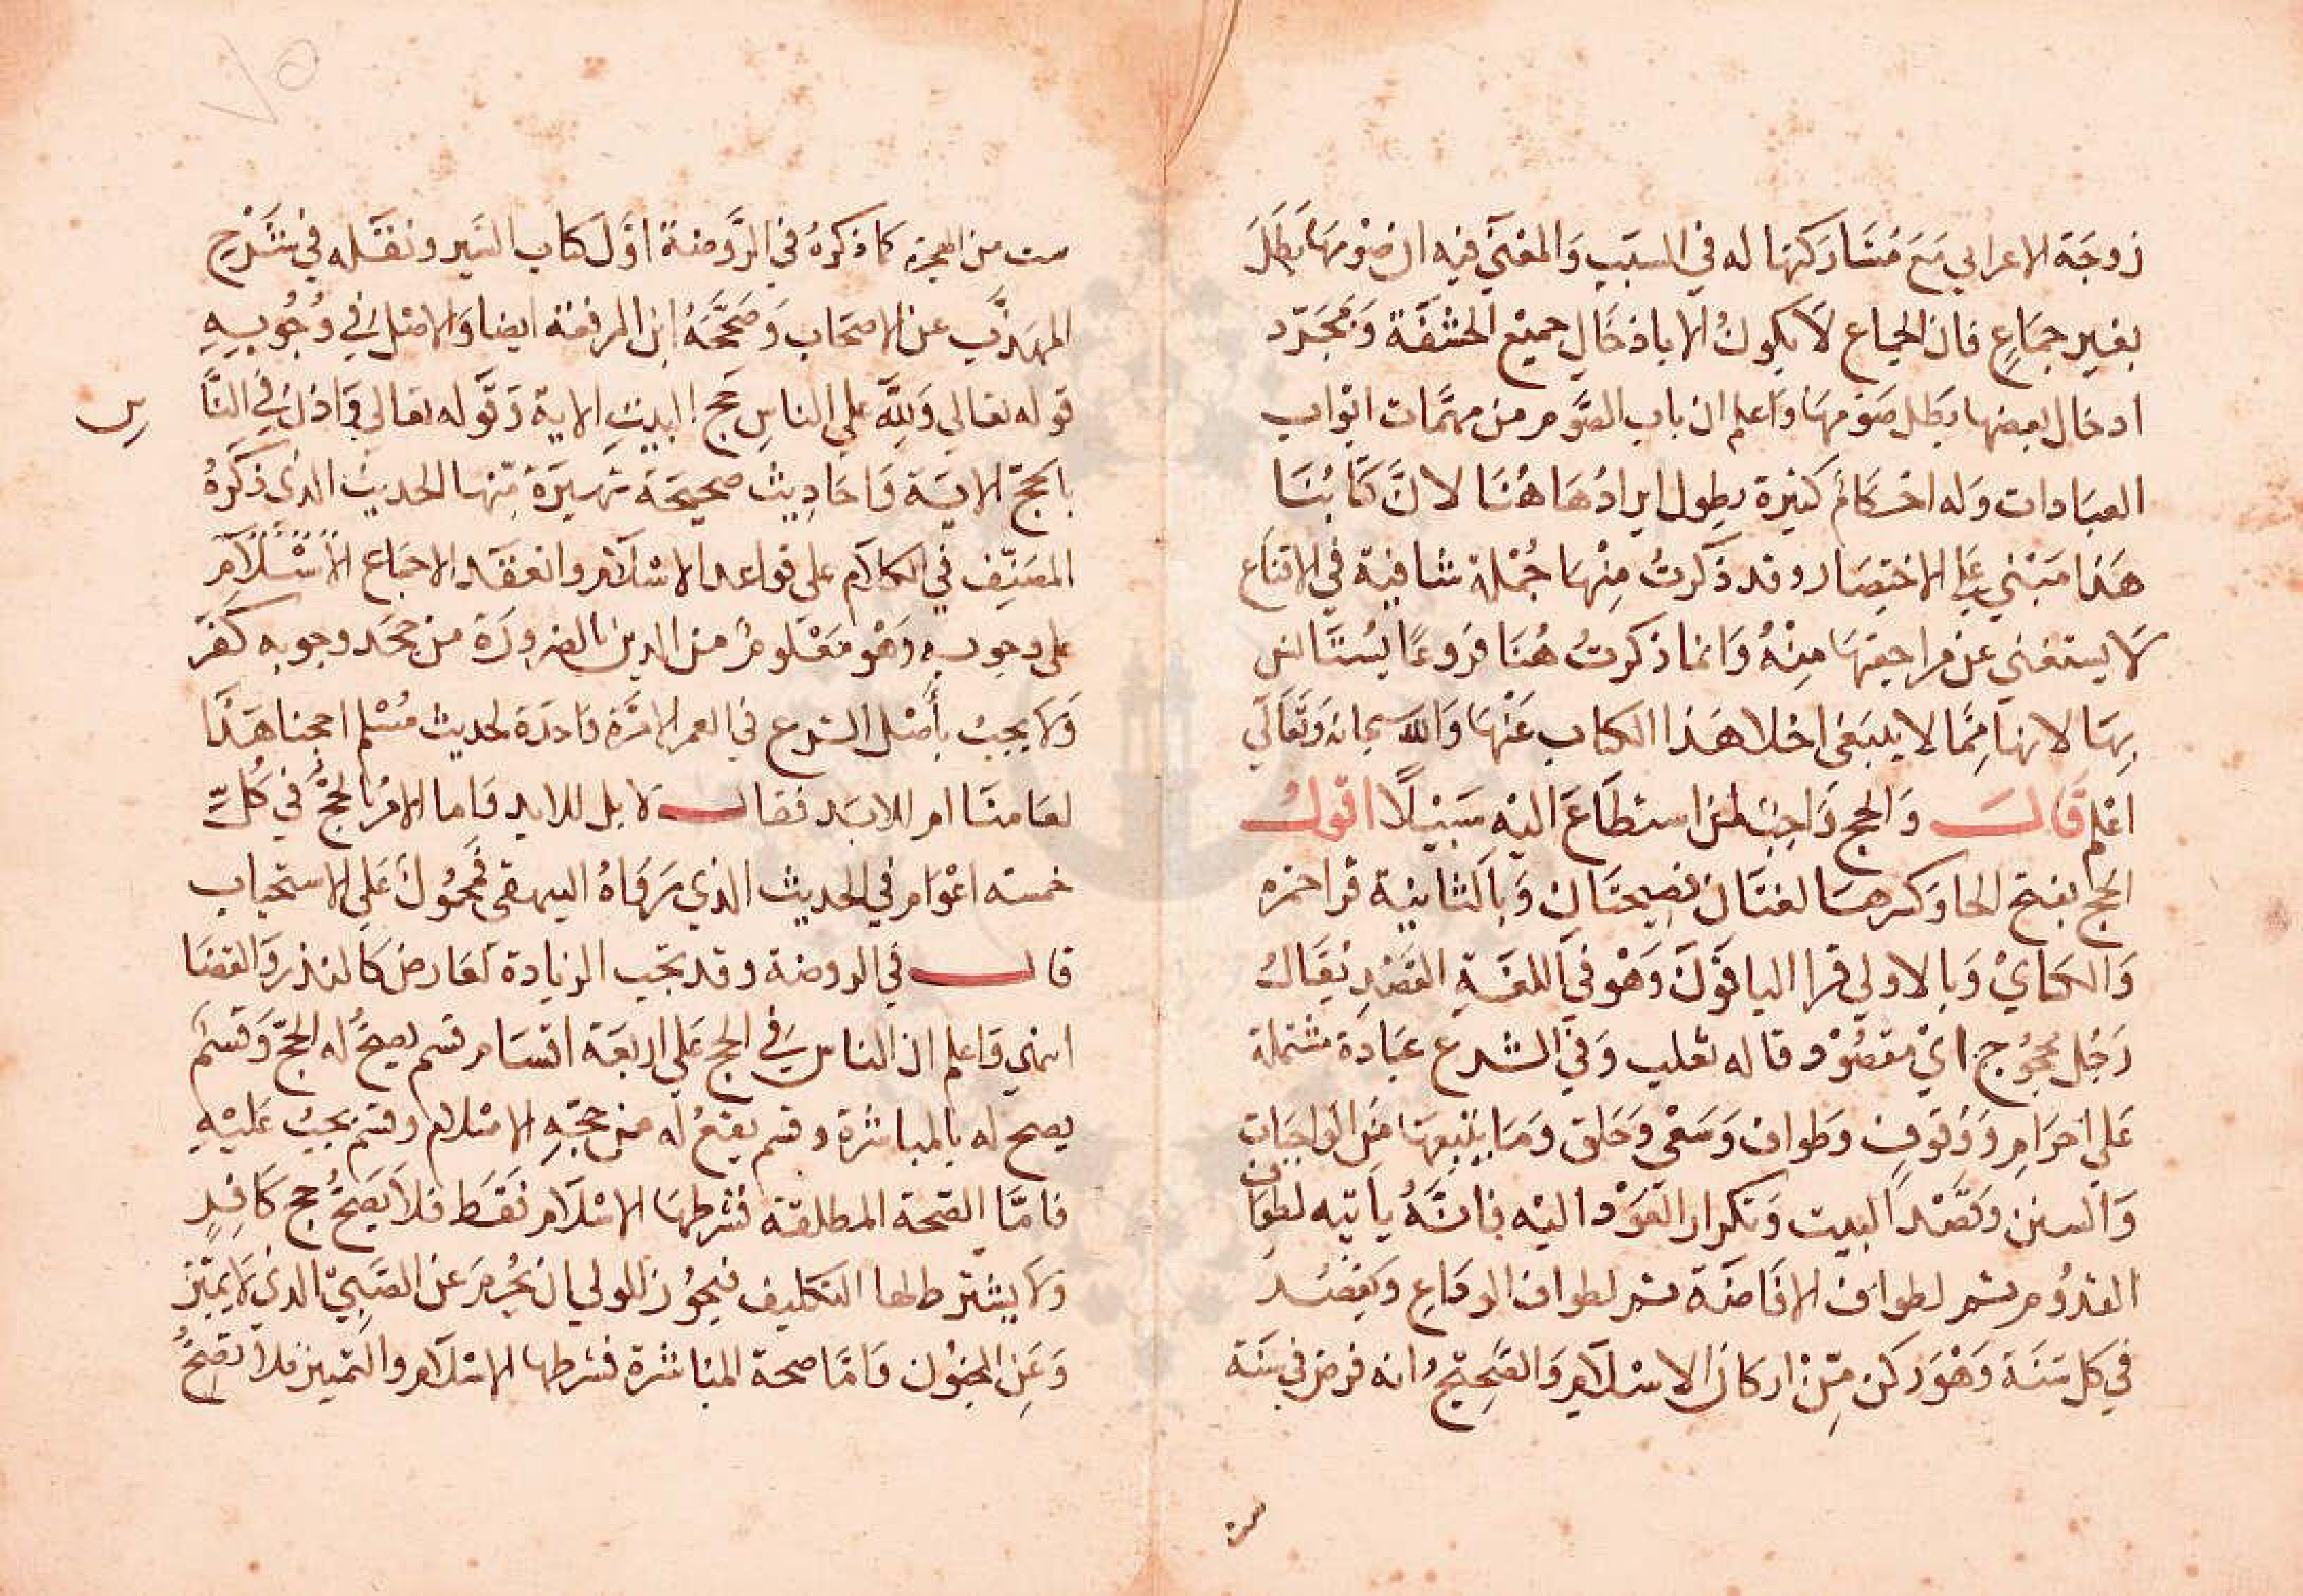 زوجَة الاعرابي مَعَ مُشَاركتها له في السبَب وَالمعْنَي فيه ان صَوْمهَا بَطَلَ
بغير جمَاعٍ فان الجماع لا يكونُ الا باد خَال جميْع الحَشفَة وَبمجَرّد
ادخال بعضها بطَل صَوْمهَا واَعلم ان باب الصَّوم من مهمَّات ابْواب
العبَادات وَله احْكامٌ كثيرة يطول ايرادُهَا هُنَا لانَّ كتَابُنَا
هَذا مَبْني عَلي الاختصَار وقد ذكرتُ مِنْهَا جُمْلة شافيَة في الاقنَاع
لَا يستغني عن مراجعتهَا مِنْهُ وَانما ذكرتُ هُنَا فروعًا يُسْتَانس
بِهَا لانهَا مِمَّا لا ينبَغي اخلا هَذا الكتاب عَنْهَا وَالله سبحانه وَتَعَالَي
اعْلم قَالَ وَالحج وَاجبٌ لمن استطَاعَ اليْهِ سَبيْلًا اقولُ
الحَج بفتح الحا وَكسرهَا لغتَان فصِيحتَانِ وَبالثانية قرا حمزه
وَالكسَايْ وَبالاولي قرا الباقوْنَ وَهْو في اللغَةِ القَصْدِ يُقَالُ
رَجُل محجُوْج ايْ مقصُوْد قاله ثعلب وَفي الشرع عبَادَة مشتملة
عَلي احْرَامٍ وَوُقوفٍ وَطواف وَسَعْي وَحَلق وَمَا يتْبعهَا مَن الوَاجبَات
وَالسنن وَقَصْد البيت وَتكرار العَوْد اليْه فانَّهُ ياتيه لطوَاف
القدُوْم ثم لطوَاف الافَاضَة ثم لطواف الوَدَاعِ وَيقصُد
في كل سَنَة وَهْوَ ركن مِّنْ اركان الاسْلَامِ وَالصَّحِيْحُ انه فرض في سَنَة
ست من الهجرَة كما ذكرهُ في الرَّوضَة اوَّل كتاب السِّير ونقَله في شَرْح
المهذَّب عن الاصحَاب وَصَححَّهُ ابن الرفعة ايضا وَالاصْل في وُجُوبِهِ
قوله تعالي وَلِلَّهِ علي الناسِ حَج البيتِ الاية وَقوله تعالي وَاذن في النَّا
س
بالحَجّ الايَة وَاحَادِيث صحيحَة شهيَرة مِّنها الحديث الذي ذكرهُ
المصَنِّف في الكلام على قواعد الاسْلام وانعقَد الاجمَاع الاسْلام
على وجوبه وَهْو مَعْلومٌ من الدين بالضرورَة من جحَد وجوبه كفَر
وَلا يجبُ بأصْل الشرع في العمر الا مرَّة وَاحدَة لحديث مُسْلم احجنا هَذا
لعَامنَا ام للابَد فقال لا بل للابد وَاما الامْرُ بالحجِّ في كُلِّ
خمسَه اعْوَام في الحديث الذي رَوَاهُ البيهقي فمحْمُول عَلي الاستحباب
قال في الروضة وقد تجب الزيادة لعَارض كالنذر وَالقضَا
انتهي وَاعلم ان الناسَ في الحج عَلي اربعَة اقسَام قسم يصحّ له الحَجّ وَقسْم
يصح له بالمباشرة وقسم يقعُ له من حجَّةِ الاسْلام وقسم يجبُ عَليْهِ
فامَّا الصِّحة المطلقة فشرطهَا الاسْلَام فقَط فلا يَصحُّ حج كَافِرٍ
وَلا يشترط لها التكليف فيَجُوز للولي ان يُحْرمَ عن الصَّبِيّ الذي لَا يميّز
وَعَنِ المجنُون وَامَّا صحة المبَاشرة فشرطها الاسْلَام والتمييز فلا تصِحُّ
٧٥